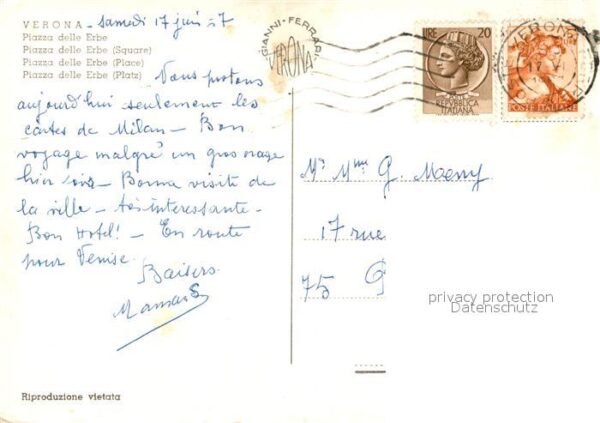 VERONA - Samedi 17 juin 57
Piazza delle Erbe
Piazza delle Erbe (Square)
Piazza delle Erbe (Place)
Piazza delle Erbe (Platz)
Vous postons
aujourd'hui seulement les
cartes de Milan - Bon
voyage malgré un gros orage
hier soir - Bonne visite de
la ville - très interessante -
Bon Hotel! - En route
pour Venise.
Baisers
Riproduzione vietata
GIANNI-FERRARI
VERONA
LIRE 20
REPUBBLICA
ITALIANA
POSTE ITALIANE
VERONA
Mr Mme G.
17 rue
75
privacy protection
Datenschutz